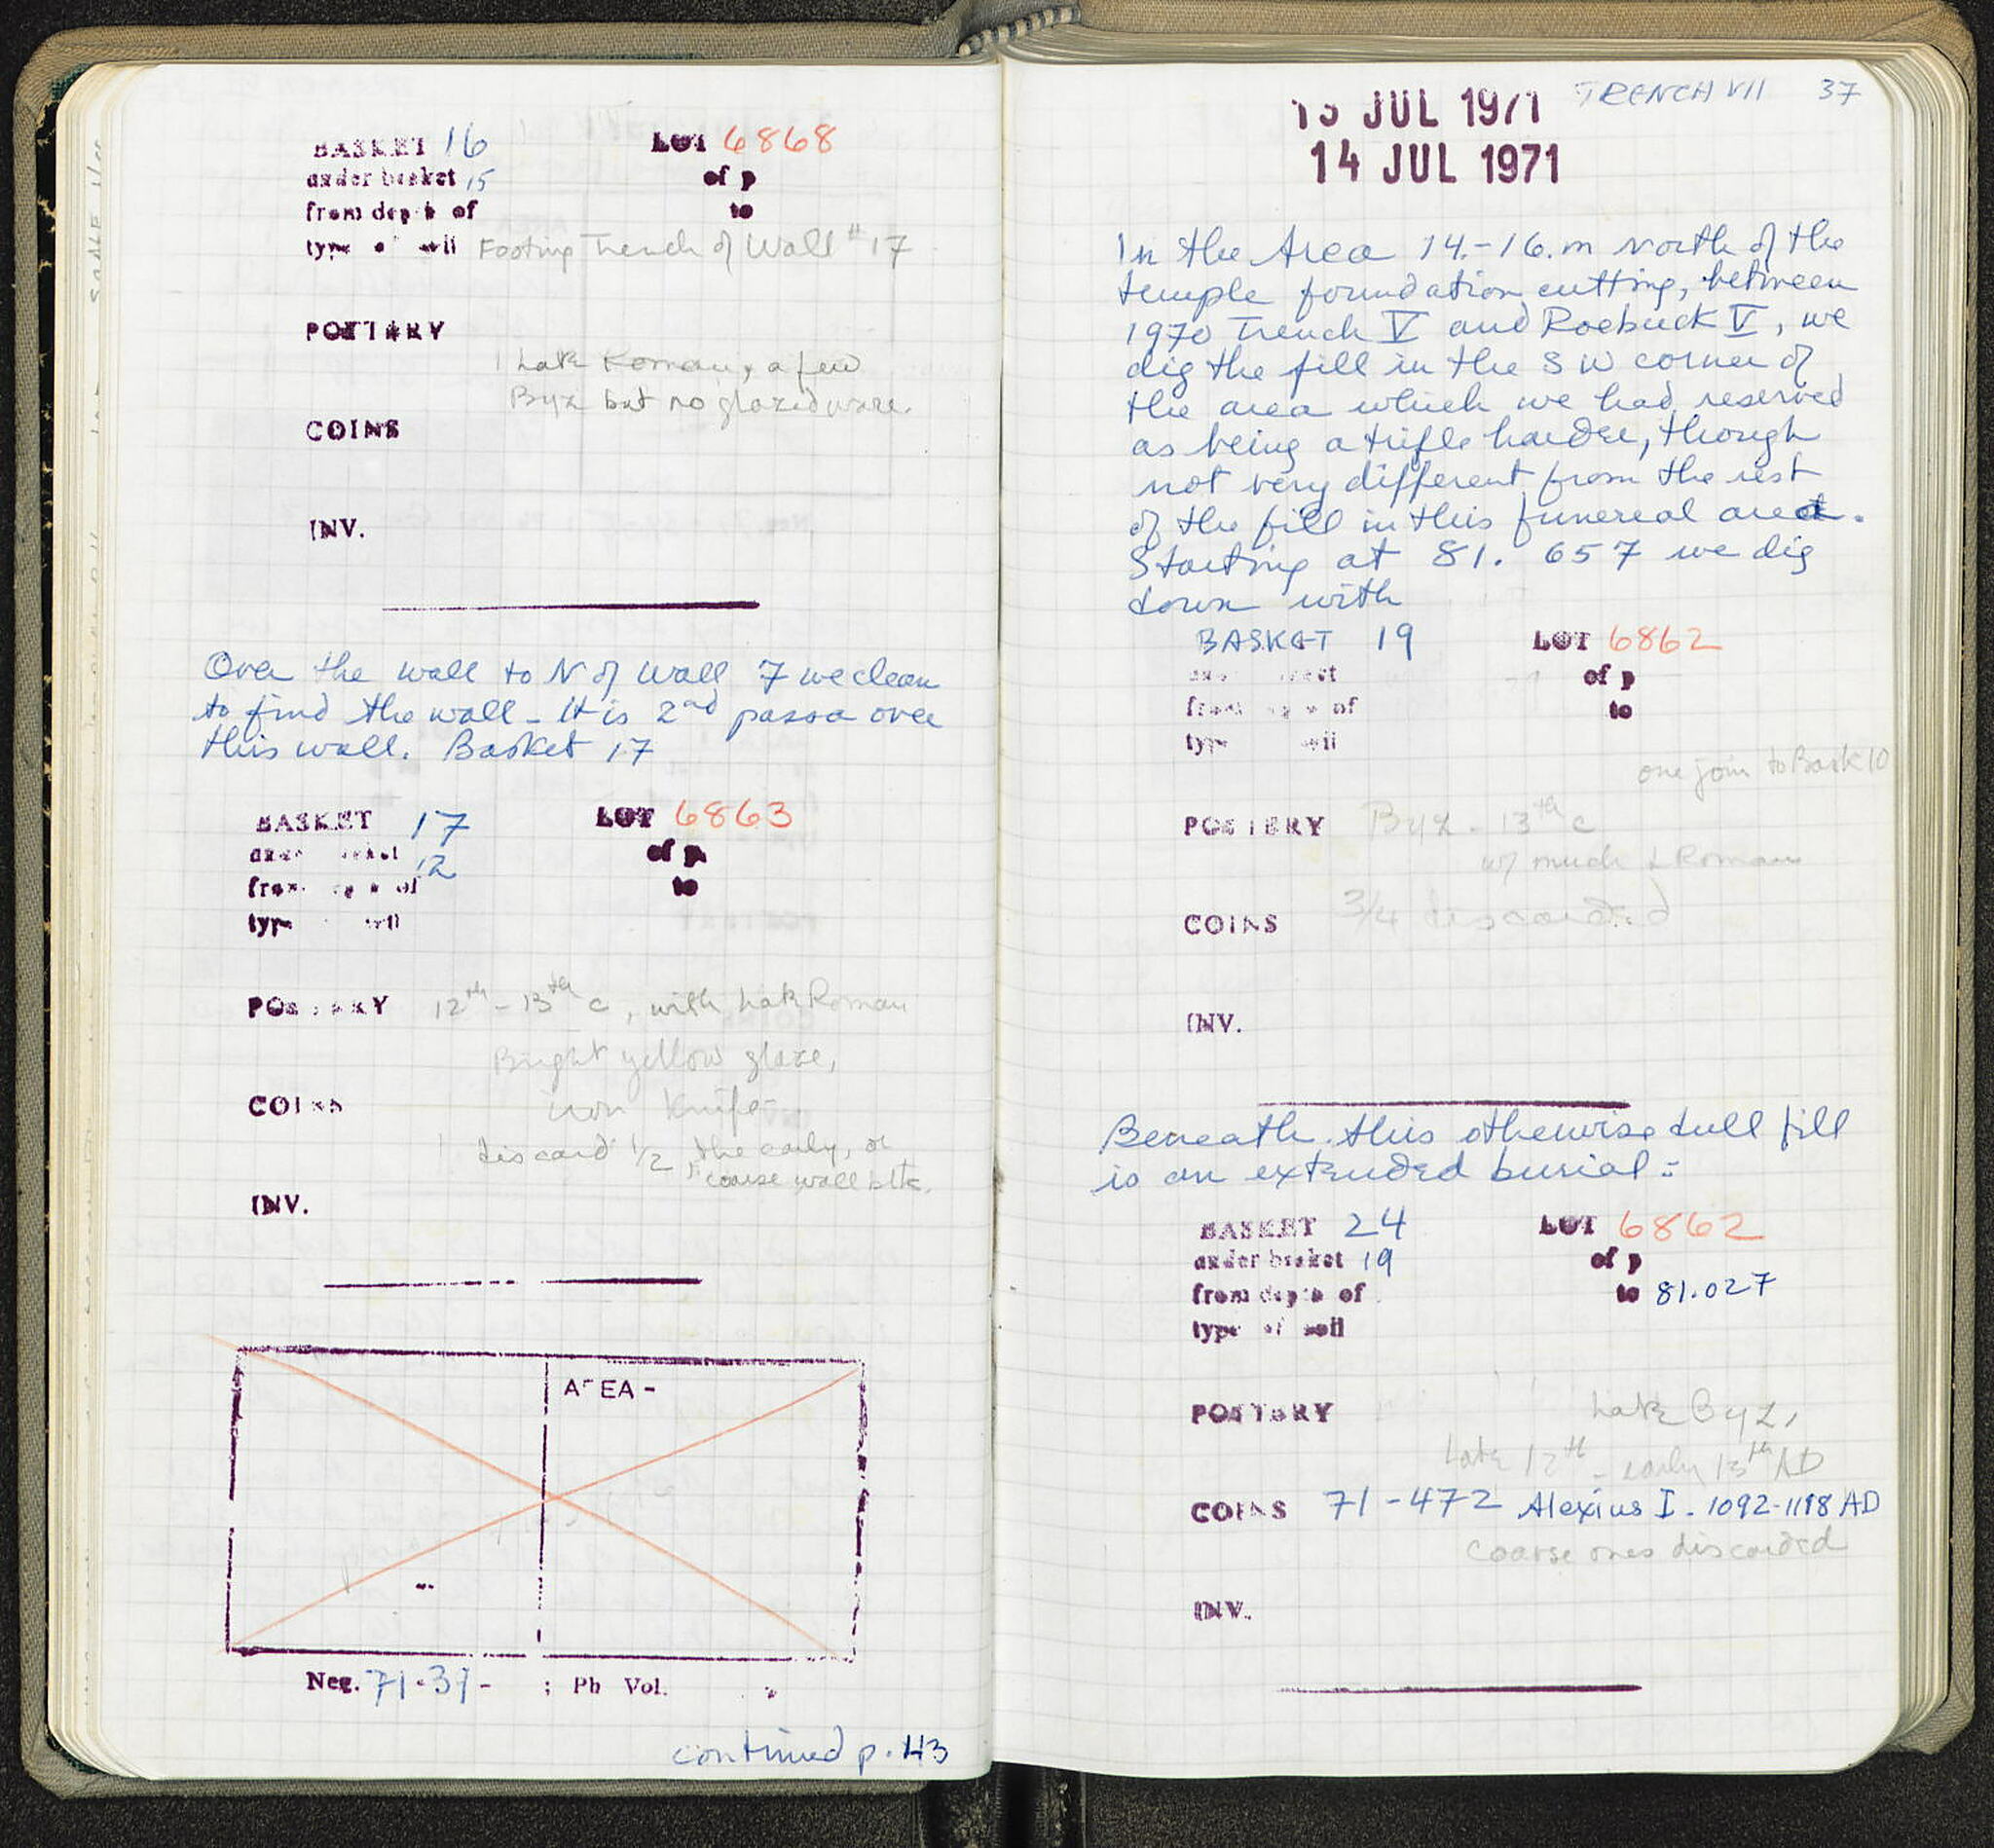 BASKET 16 LOT 6868
under basket 15 of p
from depth of to
type of soil Footing Trench of Wall #17
POTTERY
Late Roman, a few
Byz but no glazed ware.
COINS
INV.
Over the wall to N of Wall 7 we clean
to find the wall - It is 2nd passa over
this wall. Basket 17
BASKET 17 LOT 6863
under basket 12 of p.
from depth of to
type of soil
POTTERY 12th - 13th c, with Late Roman
Bright yellow glaze,
iron knife
COINS
discard 1/2 the early, or
coarse wall
INV.
AREA -
Neg. 71-37- ; Ph Vol.
continued p. 43
TRENCH VII 37
13 JUL 1971
14 JUL 1971
In the Area 14.-16.m north of the
temple foundation cutting, between
1970 Trench V and Roebuck V, we
dig the fill in the SW corner of
the area which we had reserved
as being a trifle harder, though
not very different from the rest
of the fill in this funereal area.
Starting at 81. 657 we dig
down with
BASKET 19 LOT 6862
under basket of p
from depth of to
type of soil
one join to Bask 10
POTTERY Byz - 13th c
w/ much L Roman
3/4 discarded
COINS
INV.
Beneath this otherwise dull fill
is an extended burial:
BASKET 24 LOT 6862
under basket 19 of p
from depth of to 81.027
type of soil
POTTERY Late Byz,
Late 12th - early 13th AD
COINS 71-472 Alexius I - 1092-1118 AD
coarse ones discarded
INV.